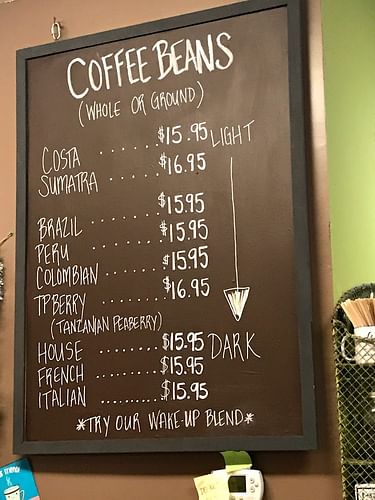 COFFEE BEANS
(WHOLE OR GROUND)
COSTA ...... $15.95 LIGHT
SUMATRA ..... $16.95
BRAZIL ....... $15.95
PERU ........ $15.95
COLOMBIAN ...... $15.95
TPBERRY ....... $16.95
(TANZANIAN PEABERRY)
HOUSE ........ $15.95 DARK
FRENCH ....... $15.95
ITALIAN .......... $15.95
*TRY OUR WAKE-UP BLEND*